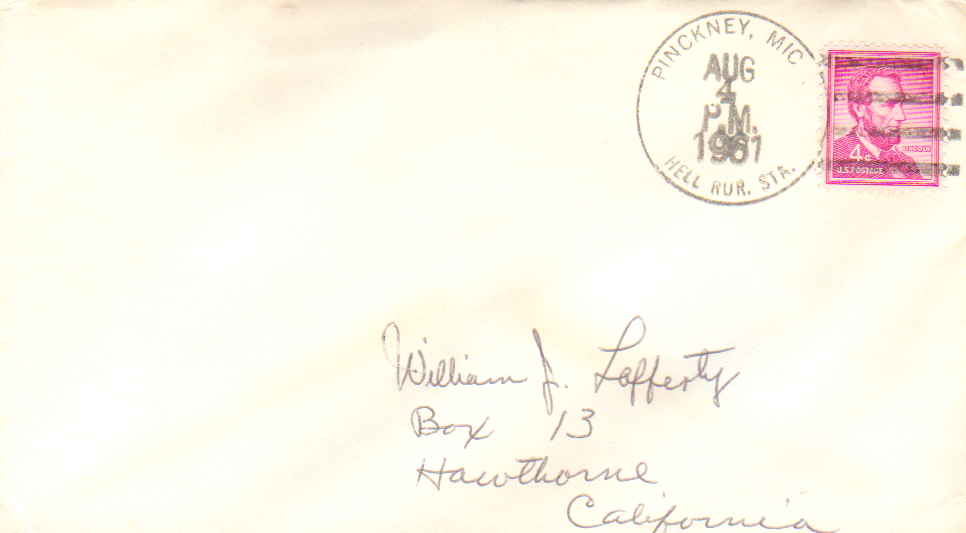 PINCKNEY, MIC
AUG
4
P.M.
1961
HELL RUR. STA.
LINCOLN
4c
U.S. POSTAGE
William J. Lafferty
Box 13
Hawthorne
California